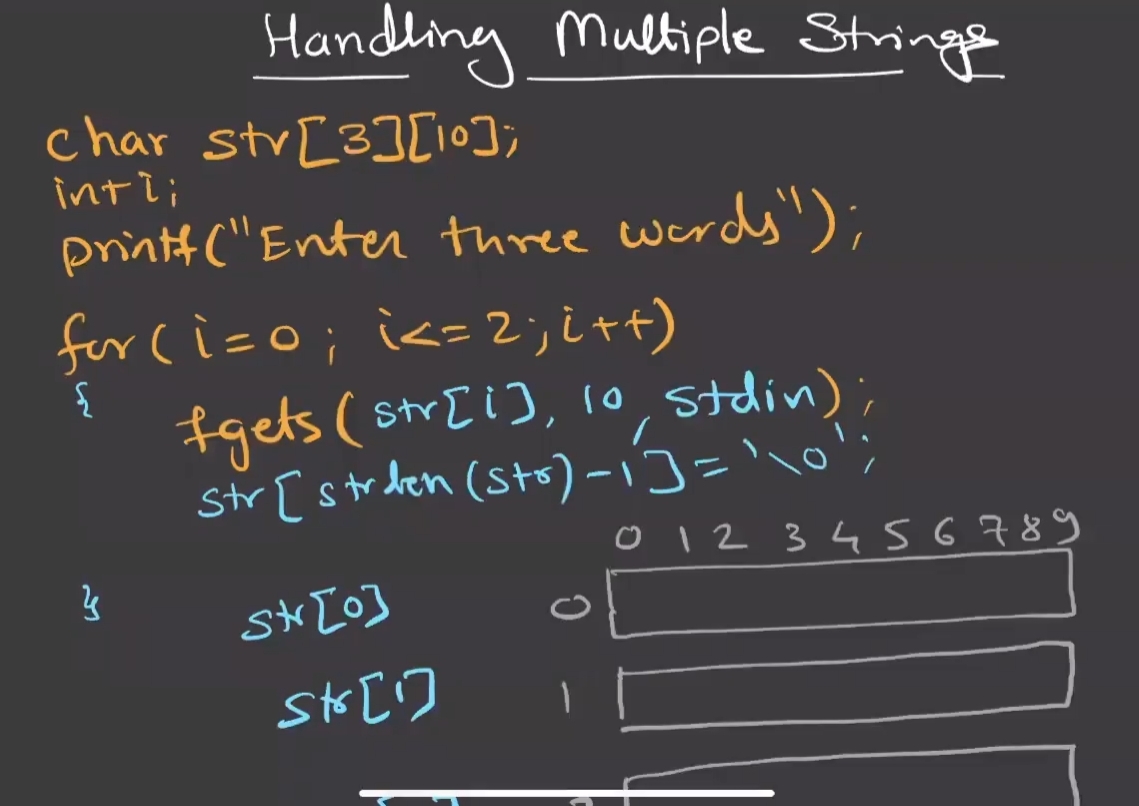 Handling Multiple Strings
char str[3][10];
int i;
printf("Enter three words");
for(i=0; i<=2; i++)
{
fgets(str[i], 10, stdin);
str[strlen(str)-1]='\0';
0 1 2 3 4 5 6 7 8 9
} str[0] 0
str[1] 1